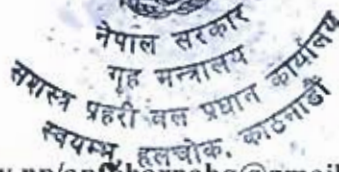 नेपाल सरकार
गृह मन्त्रालय
सशस्त्र प्रहरी बल प्रधान कार्यालय
स्वयम्भु, हलचोक, काठमाडौं